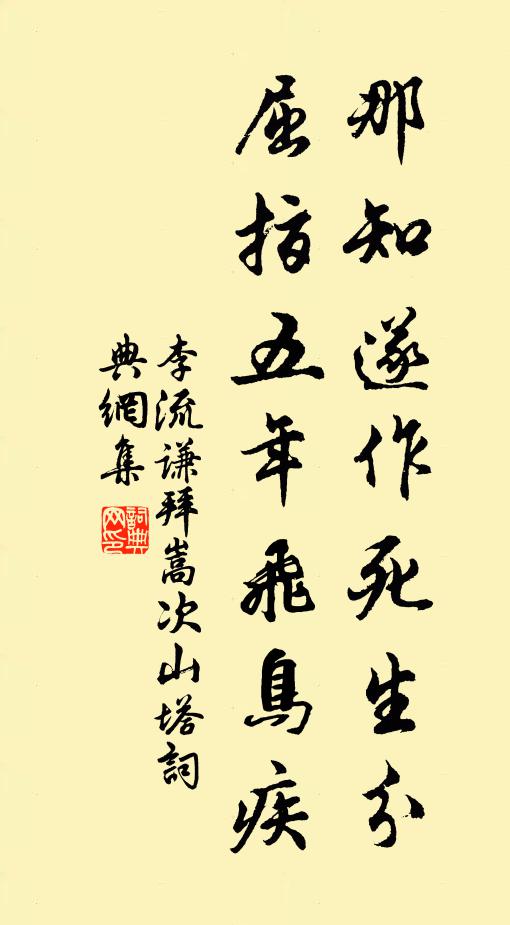 那知遂作死生分
屈指五年飛鳥疾
李流谦拜嵩次山塔詞
典網集
詞典
网印